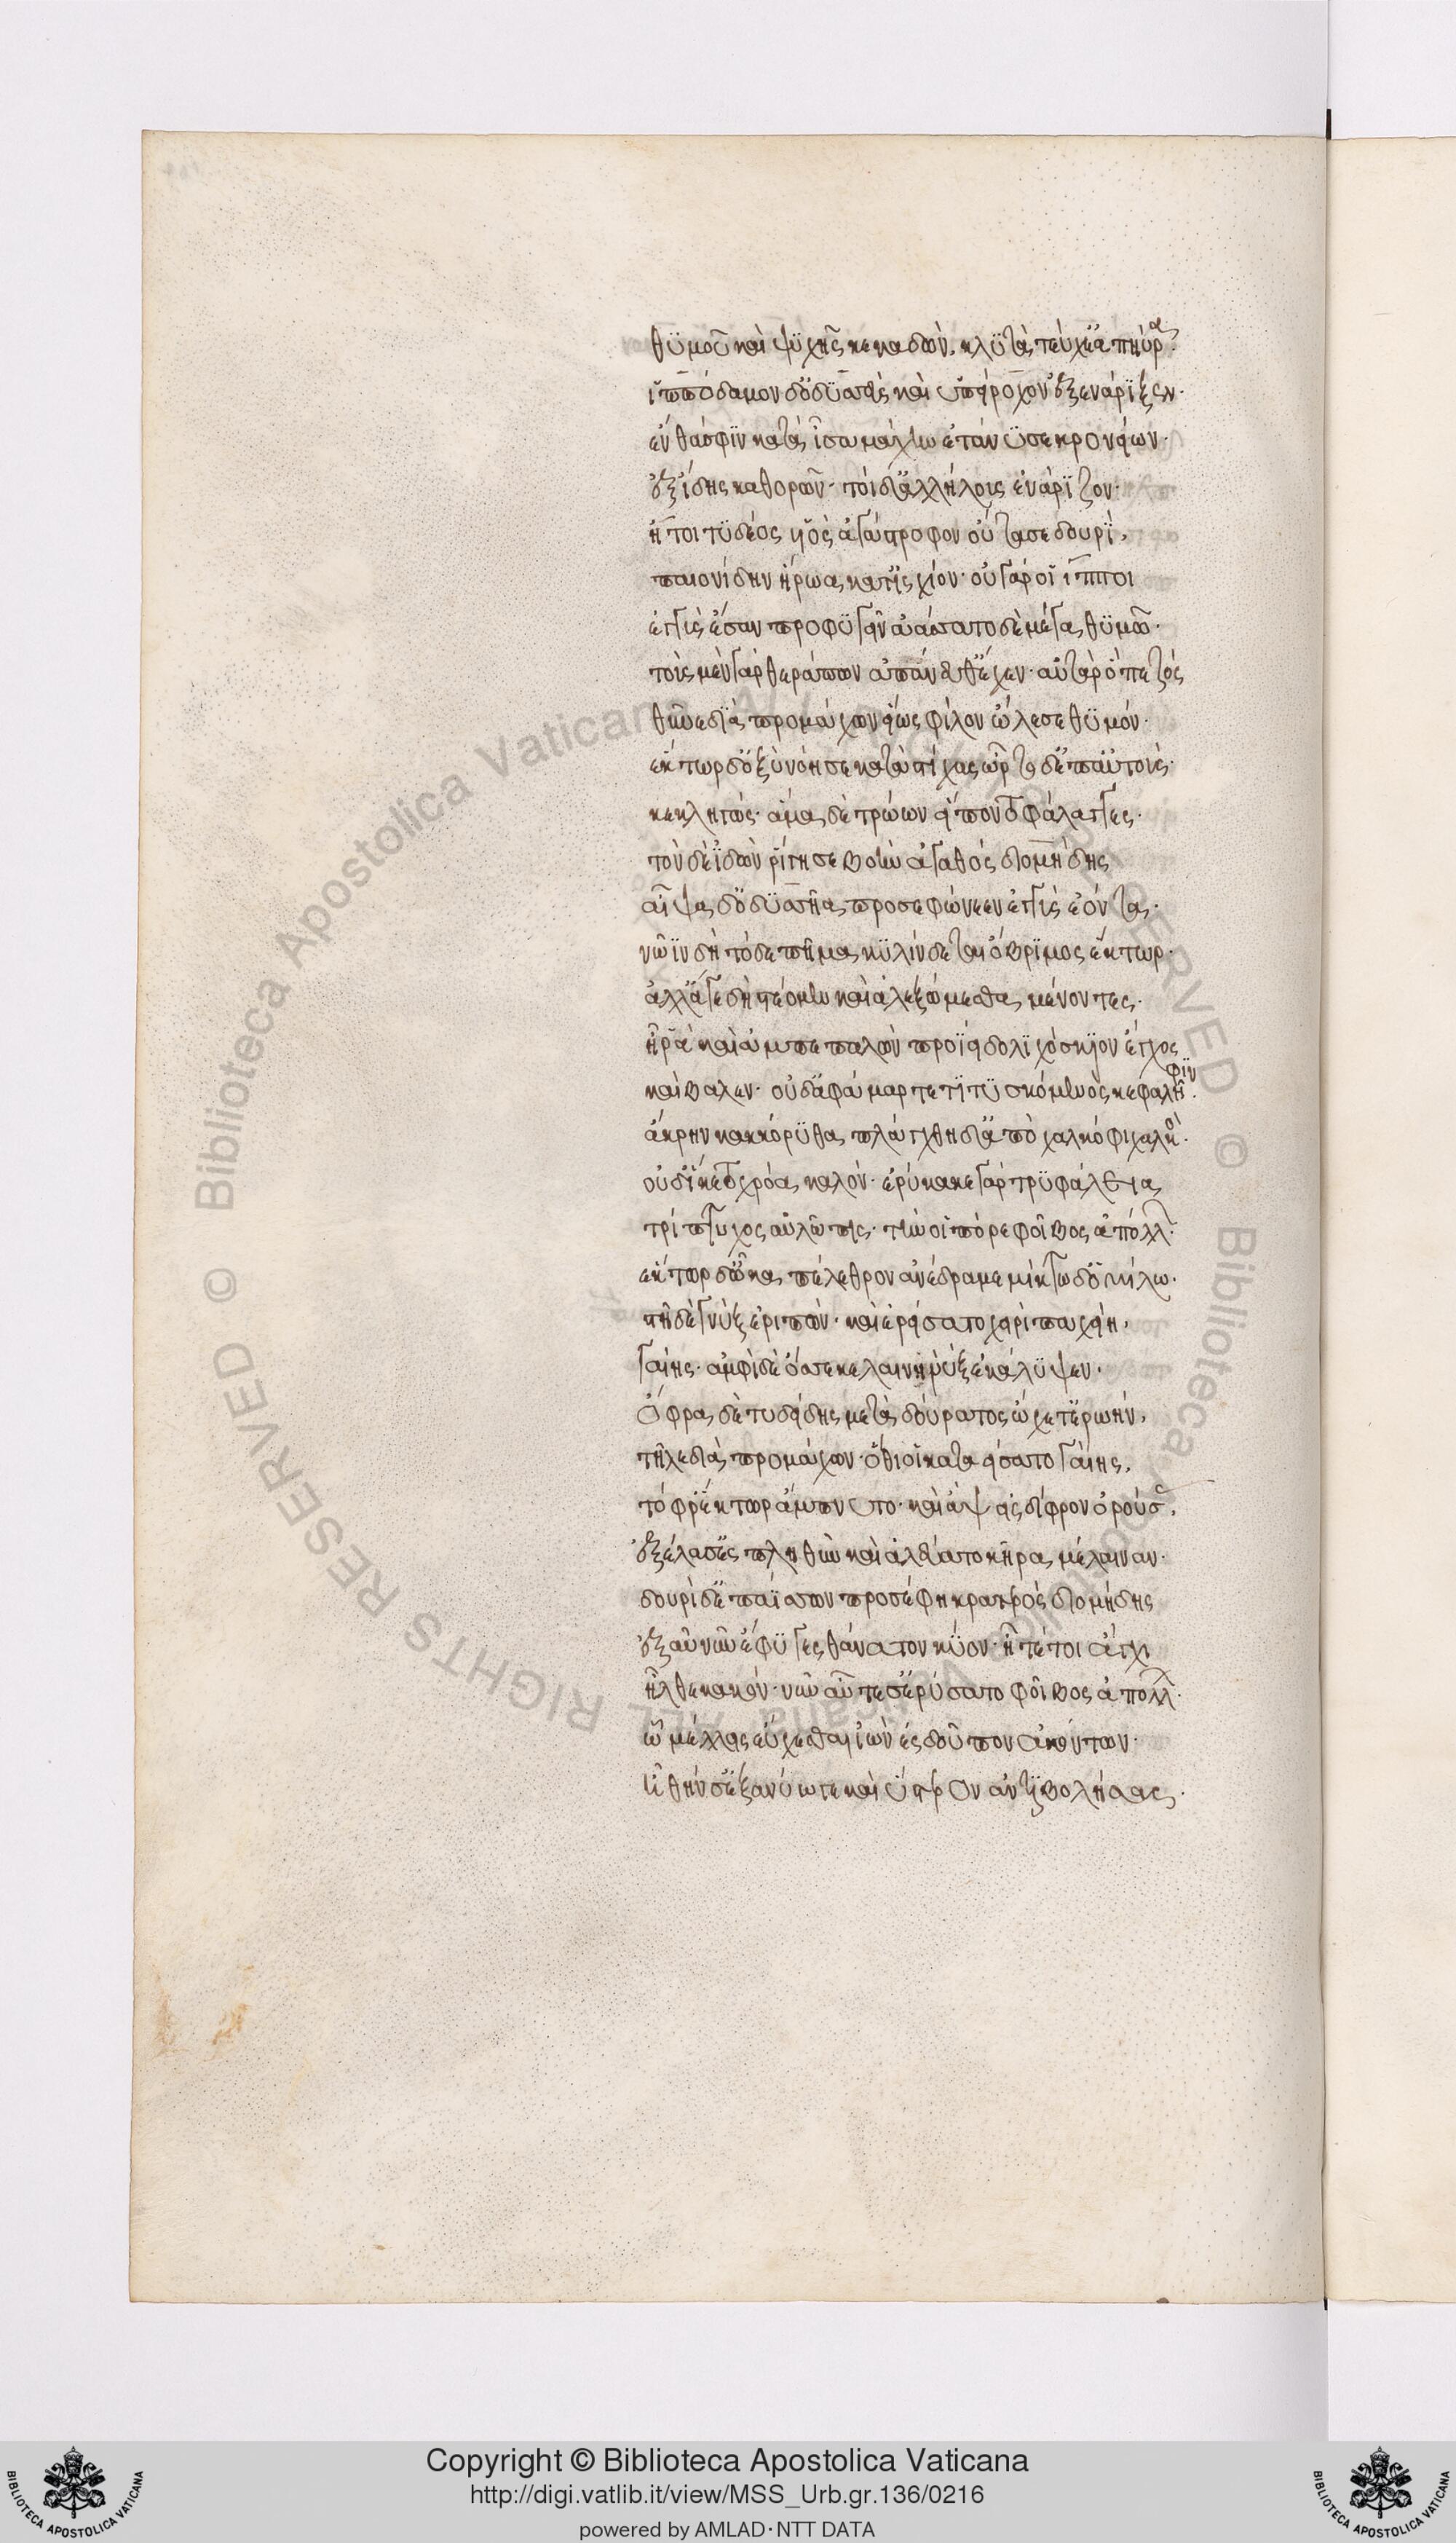 θϋμοῦ καὶ ψϋχῆς κεκαδὼν. κλϋτὰ τεύχε' ἀπηύρα.
ἱππόδαμον δ' ὀδϋσεὺς καὶ ὑπείροχον ἐξενάριξεν.
ἔνθά σφϊν κατὰ ἶσα μάχην ἐτάνϋσε κρονίων.
ἐξ ἴδης καθορῶν· τοὶ δ' ἀλλήλοις ἐνάρϊζον·
ἤτοι τϋδέος ϋἱὸς ἀγάστροφον οὔτασε δουρὶ,
παιονίδην ἥρωα κατ' ἰσχίον· οὐ γάρ οἱ ἵπποι
ἐγγὺς ἔσαν προφϋγεῖν ἀάσατο δὲ μέγα θϋμῶ·
τοὺς μὲν γὰρ θεράπων ἀπάνευθ' ἔχεν· αὐτὰρ ὁ πεζός
θῦνε δϊὰ προμάχων εἵως φίλον ὤλεσε θϋμόν·
ἕκτωρ δ' ὀξὺ νόησε κατὰ στίχας ὦρτο δ' ἐπ' αὐτοὺς·
κεκληγώς· ἅμα δὲ τρώων εἵποντο φάλαγγες·
τὸν δὲ ἰδὼν ῥίγησε βοὴν ἀγαθός διομήδης
αἶψα δ' ὀδϋσσῆα προσεφώνεεν ἐγγὺς ἐόντα·
νῶϊν δὴ τόδε πῆμα κϋλίνδεται ὄβρϊμος ἕκτωρ·
ἀλλ' ἄγε δὴ στέομεν καὶ ἀλεξώμεσθα μένοντες·
ἦ ῥα καὶ ἀμπεπαλὼν προΐει δολϊχόσκϊον ἔγχος
καὶ βάλεν· οὐδ' ἀφάμαρτε τϊτϋσκόμενος κεφαλῆφϊν.
ἄκρην κακκόρϋθα πλάγχθη δ' ἀπὸ χαλκόφι χαλκὸς.
οὐδ' ἵκετο χρόα καλὸν· ἐρύκακε γὰρ τρϋφάλεια
τρίπτυχος αὐλῶπις· τήν οἱ πόρε φοῖβος ἀπόλλων.
ἕκτωρ δ' ὦκα πέλεθρον ἀνέδραμε μίκτο δ' ὁμίλω·
στῆ δὲ γνὺξ ἐριπὼν· καὶ ἐρείσατο χειρὶ παχείη,
γαίης· ἀμφὶ δὲ ὄσσε κελαινὴ νὺξ ἐκάλϋψεν.
Ὄφρα δὲ τυδείδης μετὰ δούρατος ὤχετ' ἐρωὴν,
τῆλε διὰ προμάχων· ὅθι οἱ καταείσατο γαίης,
τόφρ' ἕκτωρ ἄμπνυτο· καὶ ἂψ εἰς δίφρον ὀρούσας,
ἐξέλασ' ἐς πληθὺν καὶ ἀλεύατο κῆρα μέλαιναν·
δουρὶ δ' ἐπαΐσσων προσέφη κρατερὸς διομήδης
ἐξ αὖ νῦν ἔφϋγες θάνατον κύον· ἦ τέ τοι ἄγχι
ἦλθε κακόν· νῦν αὖτέ σ' ἐρύσατο φοῖβος ἀπόλλων.
ὧ μέλλεις εὔχεσθαι ἰὼν ἐς δοῦπον ἀκόντων·
ἦ θήν σ' ἐξανύω γε καὶ ὕστερον ἀντϊβολήσας.
Copyright © Biblioteca Apostolica Vaticana
http://digi.vatlib.it/view/MSS_Urb.gr.136/0216
powered by AMLAD·NTT DATA